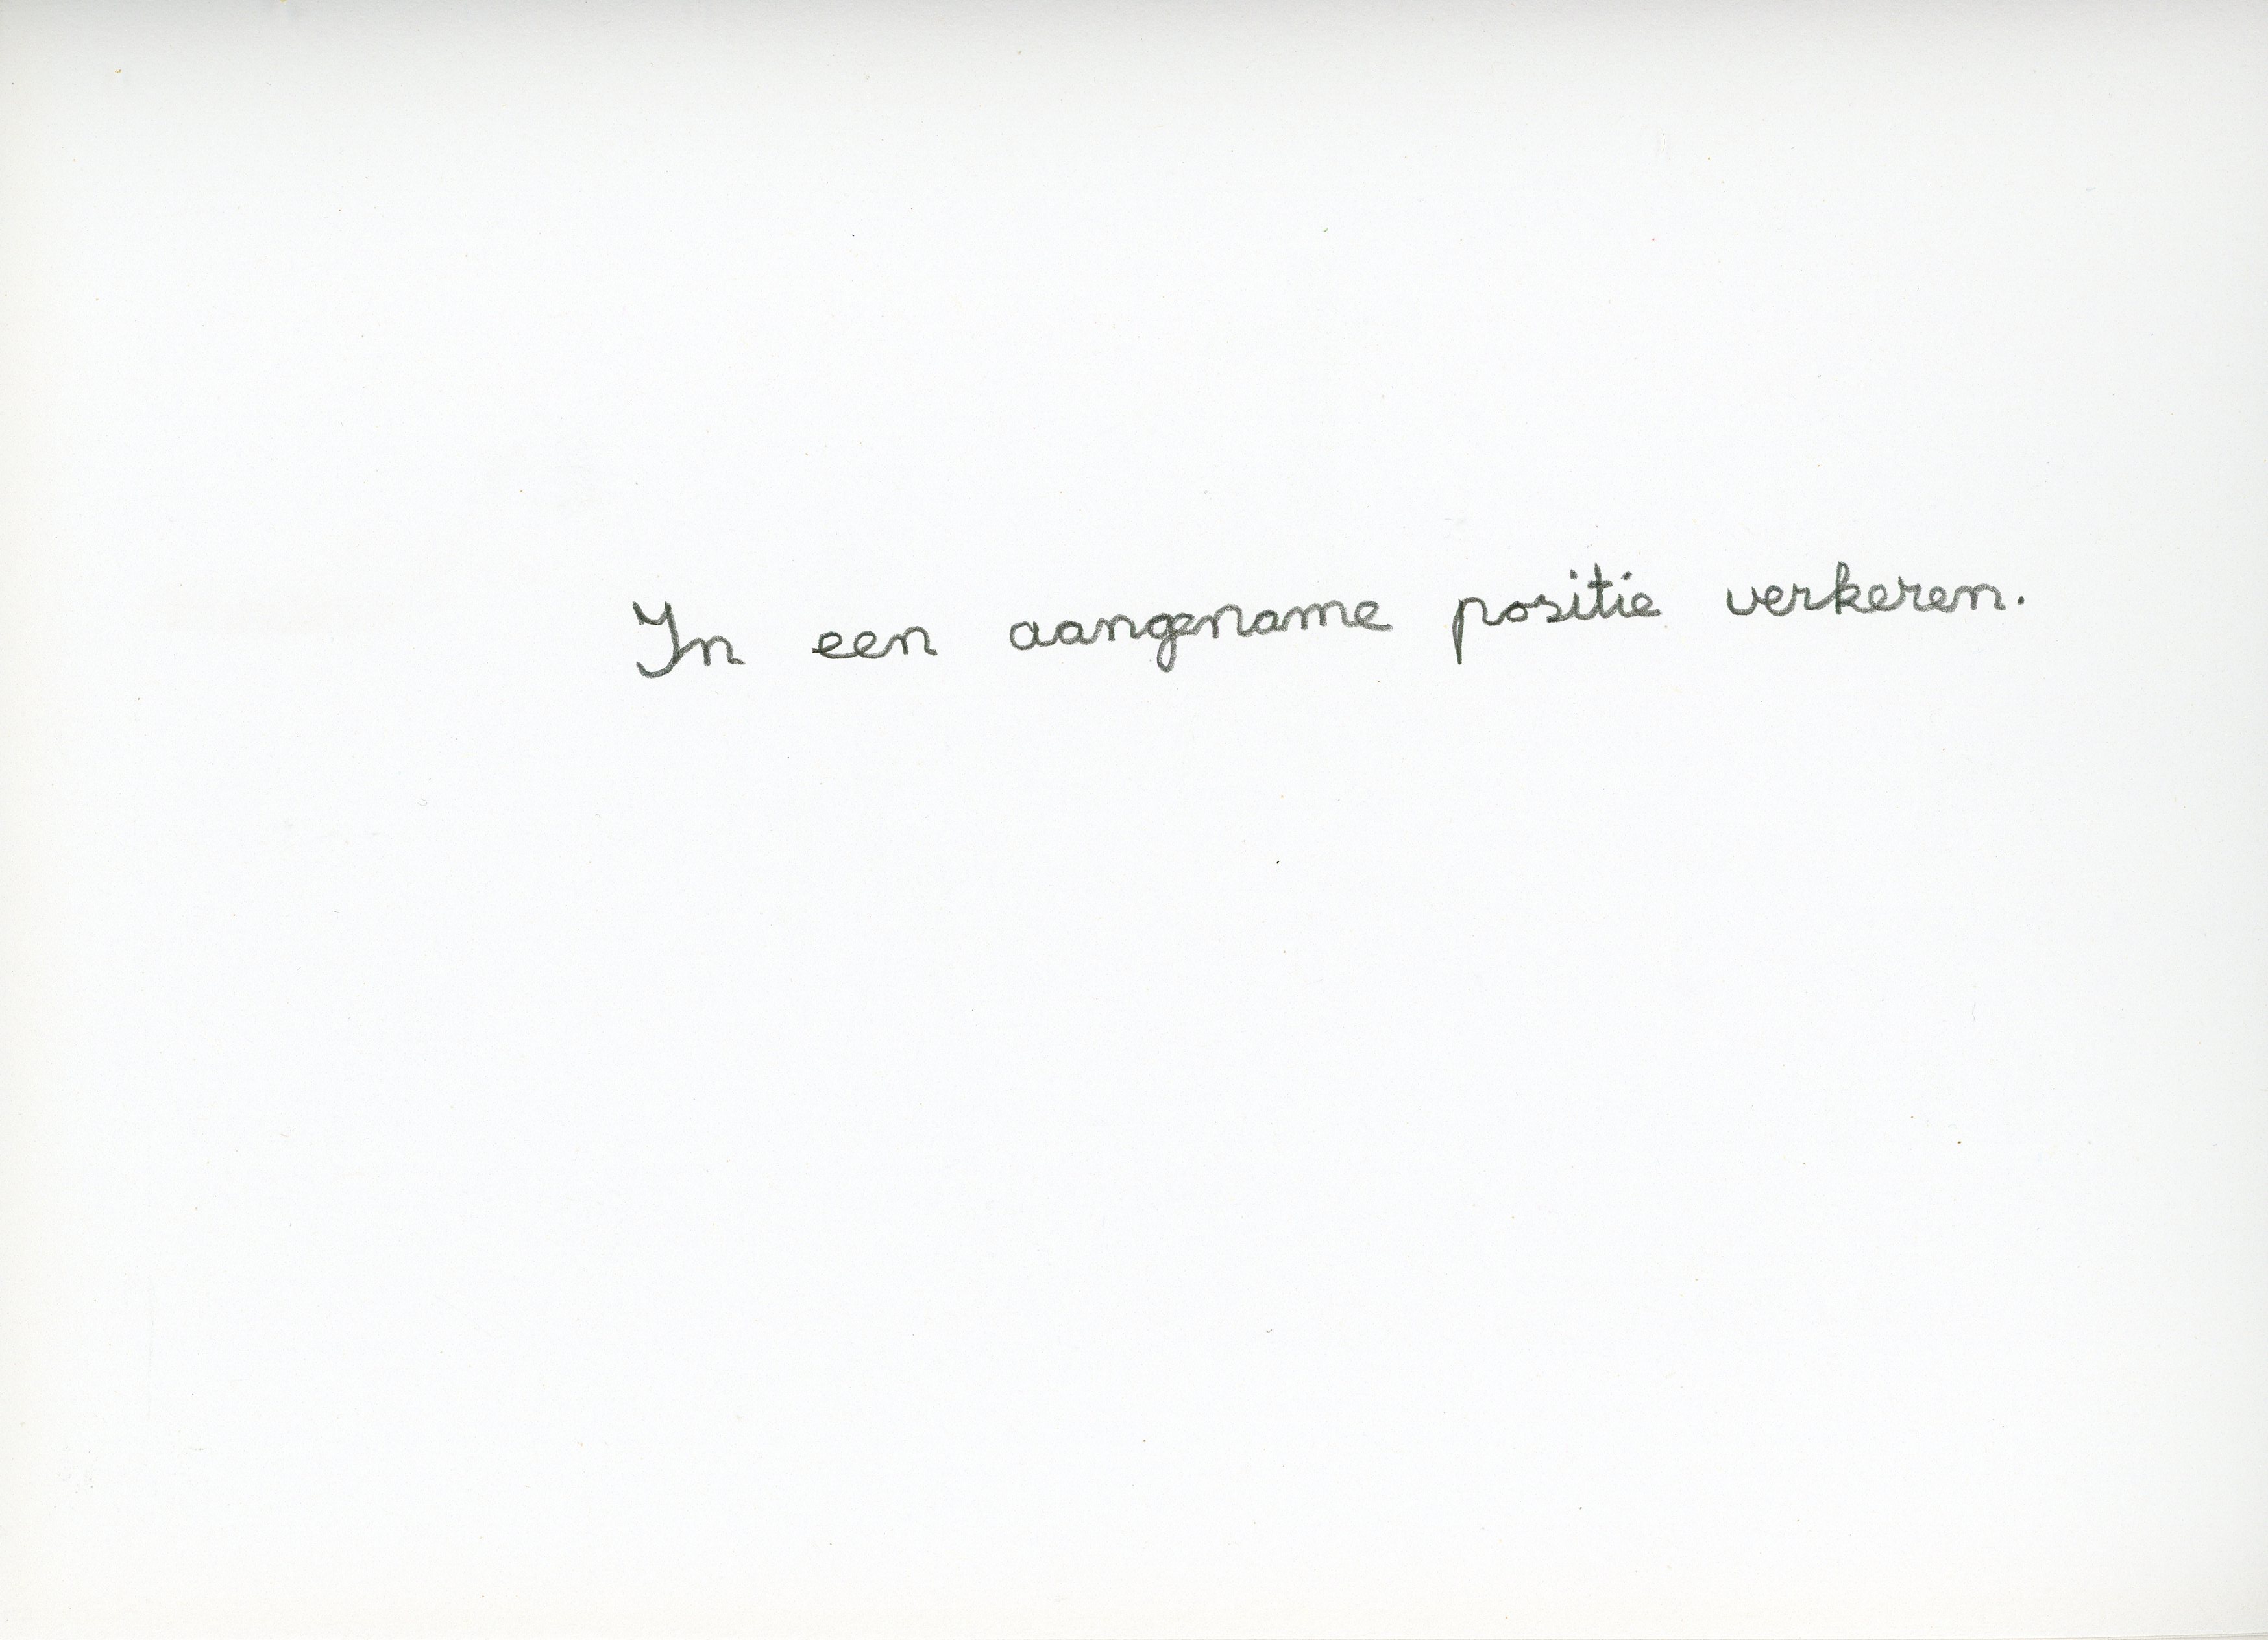 In een aangename positie verkeren.